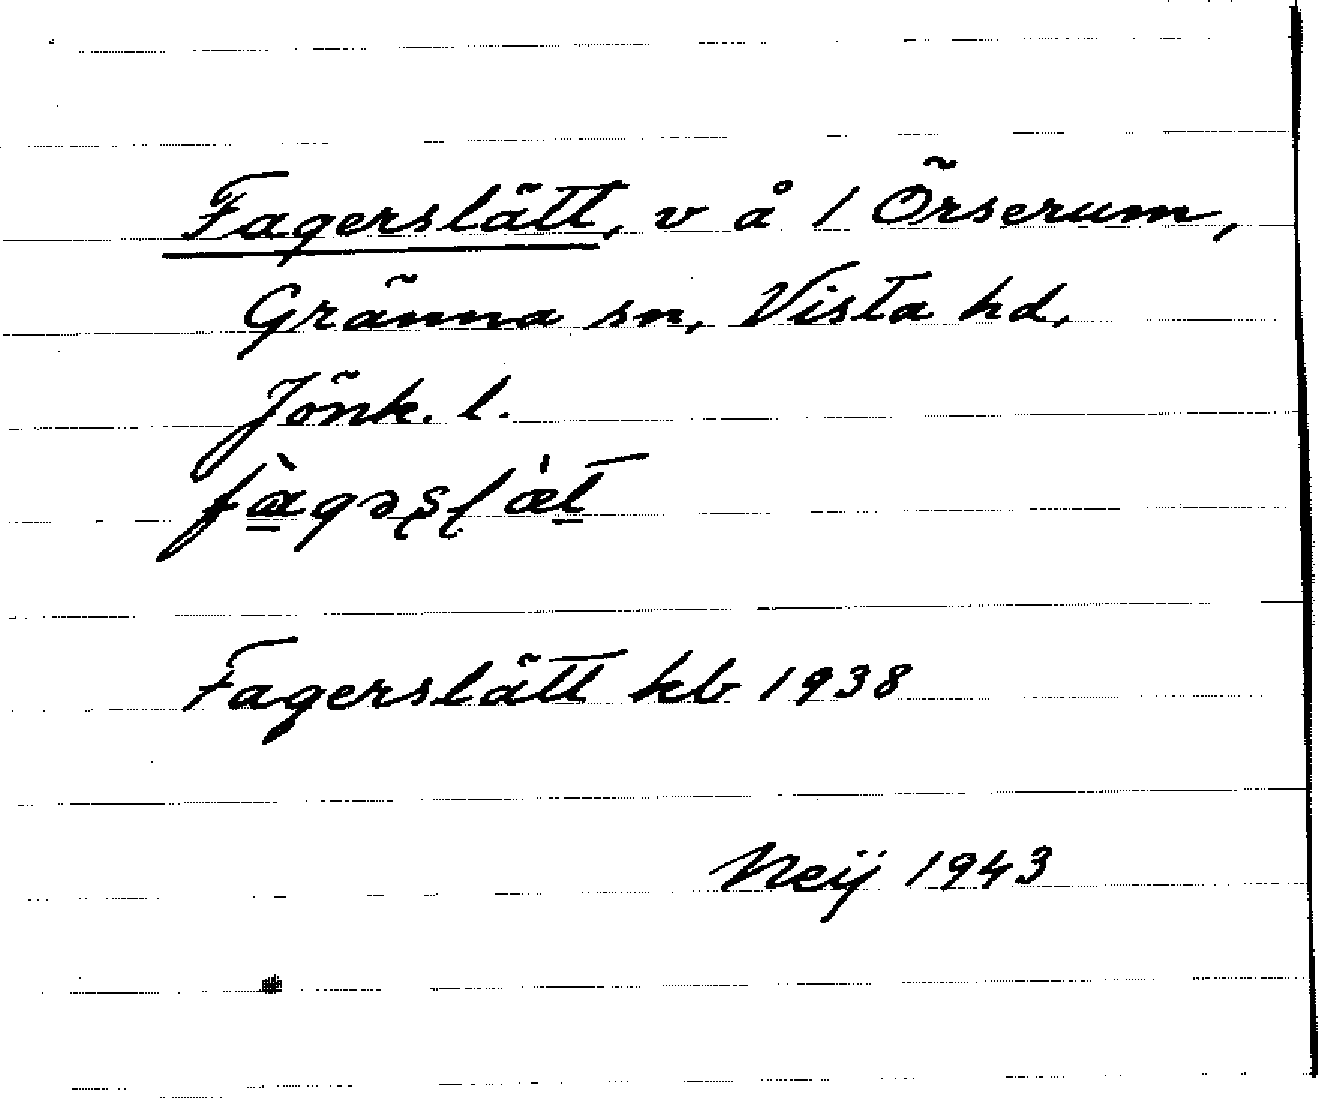 Fagerslätt, v å 1 Örserum,
Gränna sn, Vista hd,
Jönk. l.
Fagerslätt kb 1938
Neij 1943